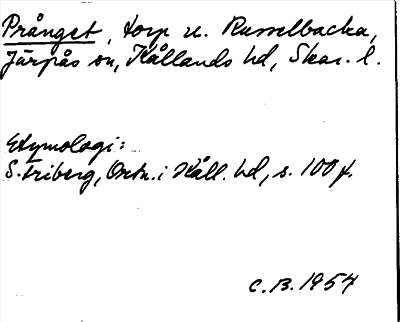 Prånget, torp u. Russelbacka,
Järpås sn, Kållands hd, Skar. l.
Etymologi:
S. Friberg, Ortn. i Kåll. hd, s. 100 f.
C.B. 1954